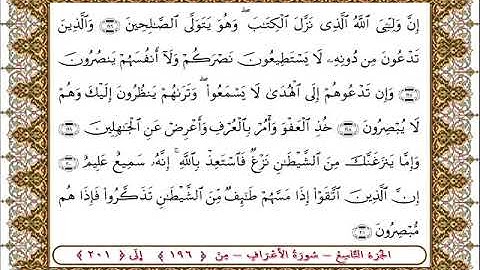 إِنَّ وَلِـِّۧيَ ٱللَّهُ ٱلَّذِي نَزَّلَ ٱلْكِتَٰبَ ۖ وَهُوَ يَتَوَلَّى ٱلصَّٰلِحِينَ ﴿١٩٦﴾ وَٱلَّذِينَ
تَدْعُونَ مِن دُونِهِۦ لَا يَسْتَطِيعُونَ نَصْرَكُمْ وَلَآ أَنفُسَهُمْ يَنصُرُونَ
﴿١٩٧﴾ وَإِن تَدْعُوهُمْ إِلَى ٱلْهُدَىٰ لَا يَسْمَعُوا۟ ۖ وَتَرَىٰهُمْ يَنظُرُونَ إِلَيْكَ وَهُمْ
لَا يُبْصِرُونَ ﴿١٩٨﴾ خُذِ ٱلْعَفْوَ وَأْمُرْ بِٱلْعُرْفِ وَأَعْرِضْ عَنِ ٱلْجَٰهِلِينَ ﴿١٩٩﴾
وَإِمَّا يَنزَغَنَّكَ مِنَ ٱلشَّيْطَٰنِ نَزْغٌ فَٱسْتَعِذْ بِٱللَّهِ ۚ إِنَّهُۥ سَمِيعٌ عَلِيمٌ ﴿٢٠٠﴾
إِنَّ ٱلَّذِينَ ٱتَّقَوْا۟ إِذَا مَسَّهُمْ طَٰٓئِفٌ مِّنَ ٱلشَّيْطَٰنِ تَذَكَّرُوا۟ فَإِذَا هُم
مُّبْصِرُونَ ﴿٢٠١﴾
الجزء التاسع – سورة الأعراف – من ﴿ ١٩٦ ﴾ إلى ﴿ ٢٠١ ﴾